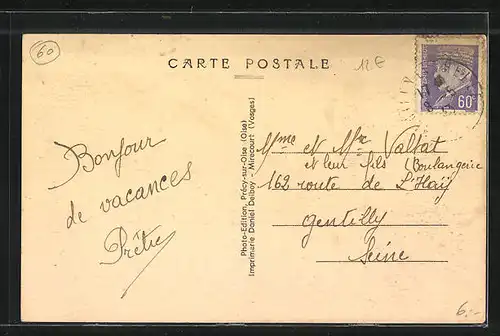 60
CARTE POSTALE
12 €
60c
Bonjour
de vacances
Photo-Edition, Précy-sur-Oise (Oise)
Imprimerie Daniel Delboy - Mirecourt (Vosges)
Mme et Mr Valtat
et leur fils (Boulangerie
162 route de L'Haÿ
Gentilly
Seine
6.-